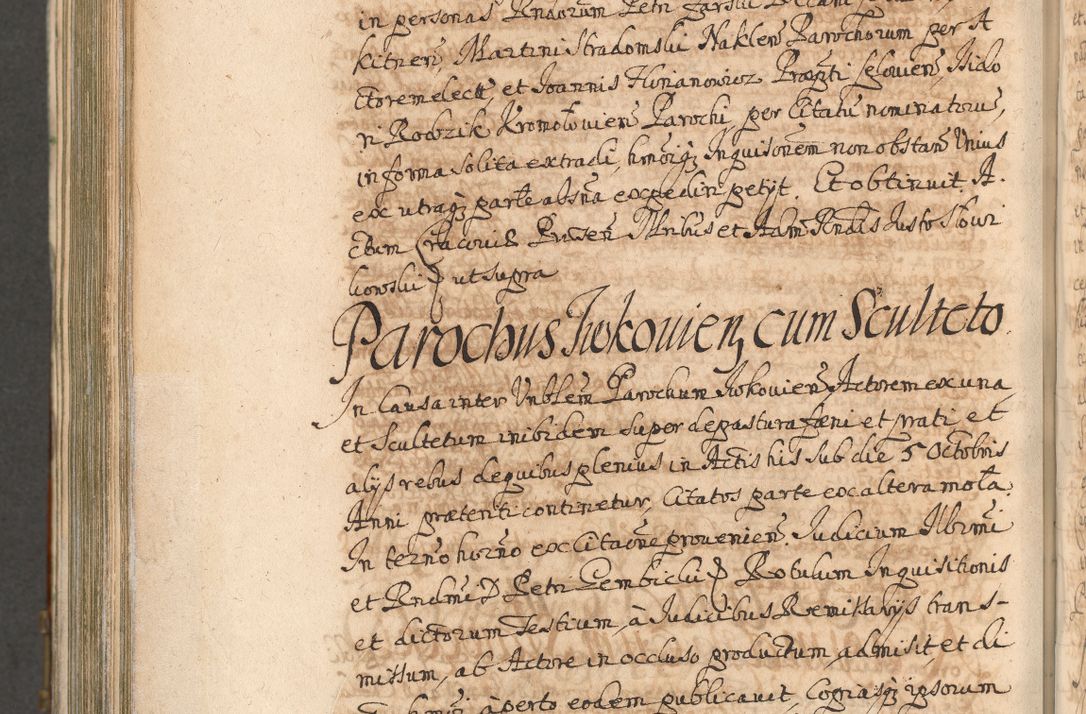 in personas Rndorum Petri
kitnen, Martini Stradomski Naklen Parochorum per A
ctorem elect, et Joannis Florianowicz Praepti Islouien, Isido
ri Rodzik Kromołouien Parochi, per Citatu nominatoru,
in forma solita extradi, hmoiq Inquisonem non obstan Unius
ex utraq parte absna expediri petijt. Et obtinuit. A
ctum Cracouie Prasen Mribus et Adm Rndis Justo Słowi
kowski ut supra
Parochus Irokouien, cum Sculteto
In Causa inter Vnblem Parochum Irokouien, Actorem ex una
et Scultetum inibidem super depastura faeni et prati, et
alijs rebus de quibus plenius in Actis his sub die 5 Octobris
Anni praetenti continetur, Citatos parte ex altera mota.
In terno horno ex Citaone prouenien. Judicium Illbrmi
et Rndmi D Petri Gembicki D Rotulum Inquisitionis
et dictorum Testium, à Judicibus Remissarijs trans-
missum, ab Actore in occluso productum, admisit, et di
aperto eodem publicauit, Copiasq ipsorum